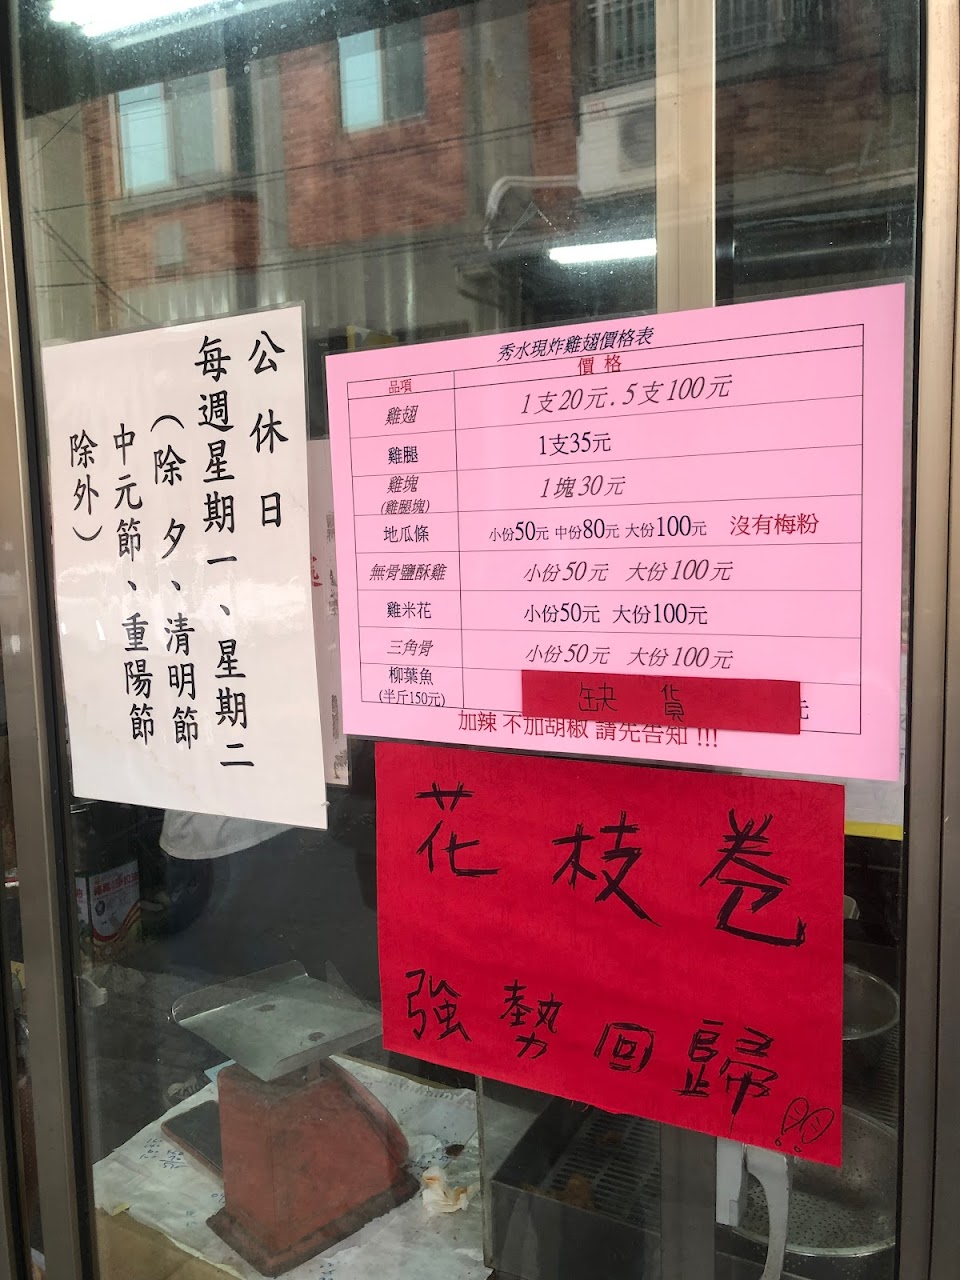 公休日
每週星期一、星期二
（除夕、清明節
中元節、重陽節
除外）
秀水現炸雞翅價格表
品項 價格
雞翅 1支20元.5支100元
雞腿 1支35元
雞塊 1塊30元
(雞腿塊)
地瓜條 小份50元 中份80元 大份100元 沒有梅粉
無骨鹽酥雞 小份50元 大份100元
雞米花 小份50元 大份100元
三角骨 小份50元 大份100元
柳葉魚 缺貨 元
(半斤150元)
加辣 不加胡椒 請先告知 !!!
花枝卷
強勢回歸!!